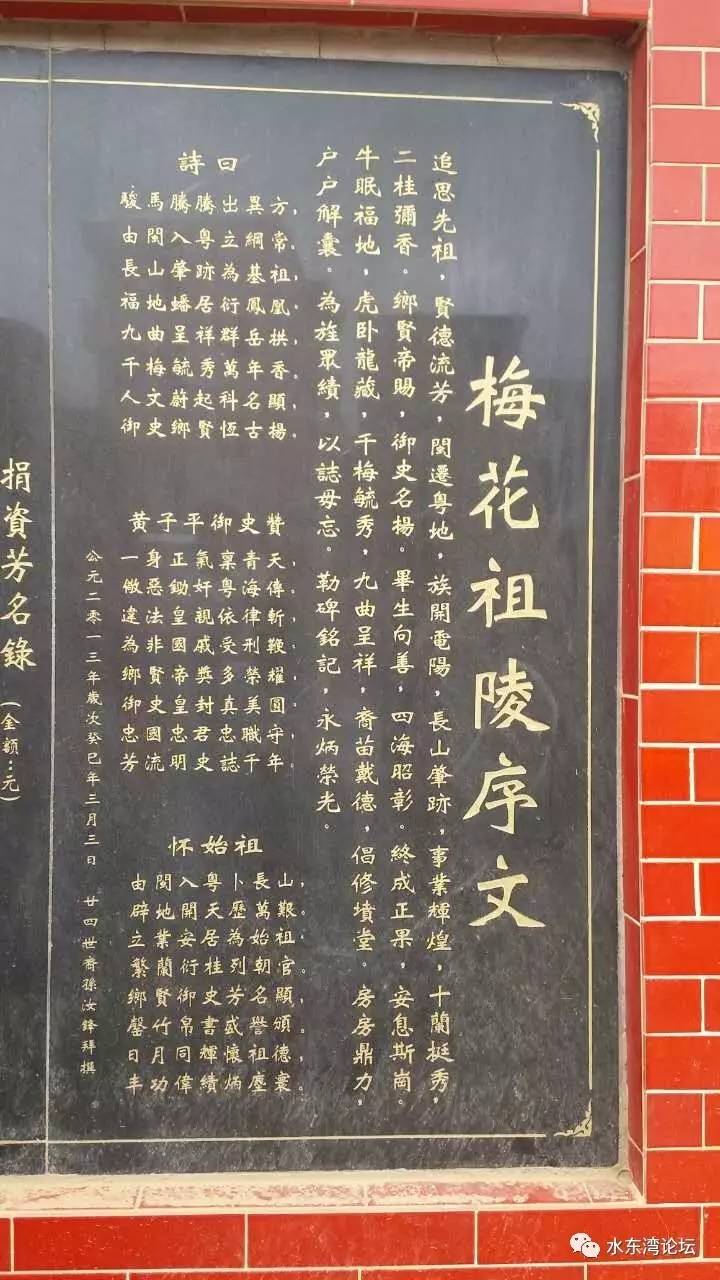 梅花祖陵序文
追思先祖，賢德流芳，閩遷粤地，族開電陽，長山肇跡，事業輝煌，十蘭挺秀，
二桂彌香。鄉賢帝賜，御史名楊。畢生向善，四海昭彰。終成正果，安息斯崗。
牛眠福地，虎卧龍藏，千梅毓秀，九曲呈祥，裔苗戴德，倡修墳堂。房房鼎力，
户户解囊。為旌眾績，以誌毋忘。勒碑銘記，永炳榮光。
詩曰
駿馬騰騰出異方，
由閩入粤立綱常。
長山肇跡為基祖，
福地蟠居衍鳳凰。
九曲呈祥群岳拱，
千梅毓秀萬年香。
人文蔚起科名顯，
御史鄉賢恆古揚。
黄子平御史贊
一身正氣稟青天，
儆惡鋤奸粤海傳。
違法皇親依律斬，
為非國戚受刑鞭。
鄉賢帝獎多榮耀，
御史皇封真美圓。
忠國忠君忠職守，
芳流明史誌千年。
怀始祖
由閩入粤卜長山，
辟地開天歷萬艱。
立業安居為始祖，
繁蘭衍桂列朝官。
鄉賢御史芳名顯，
罄竹帛書盛譽頒。
日月同輝懷祖德，
丰功偉績炳塵寰。
公元二零一三年歲次癸巳年三月三日 廿四世裔孫汝鋒拜撰
捐資芳名錄（金額：元）
水东湾论坛